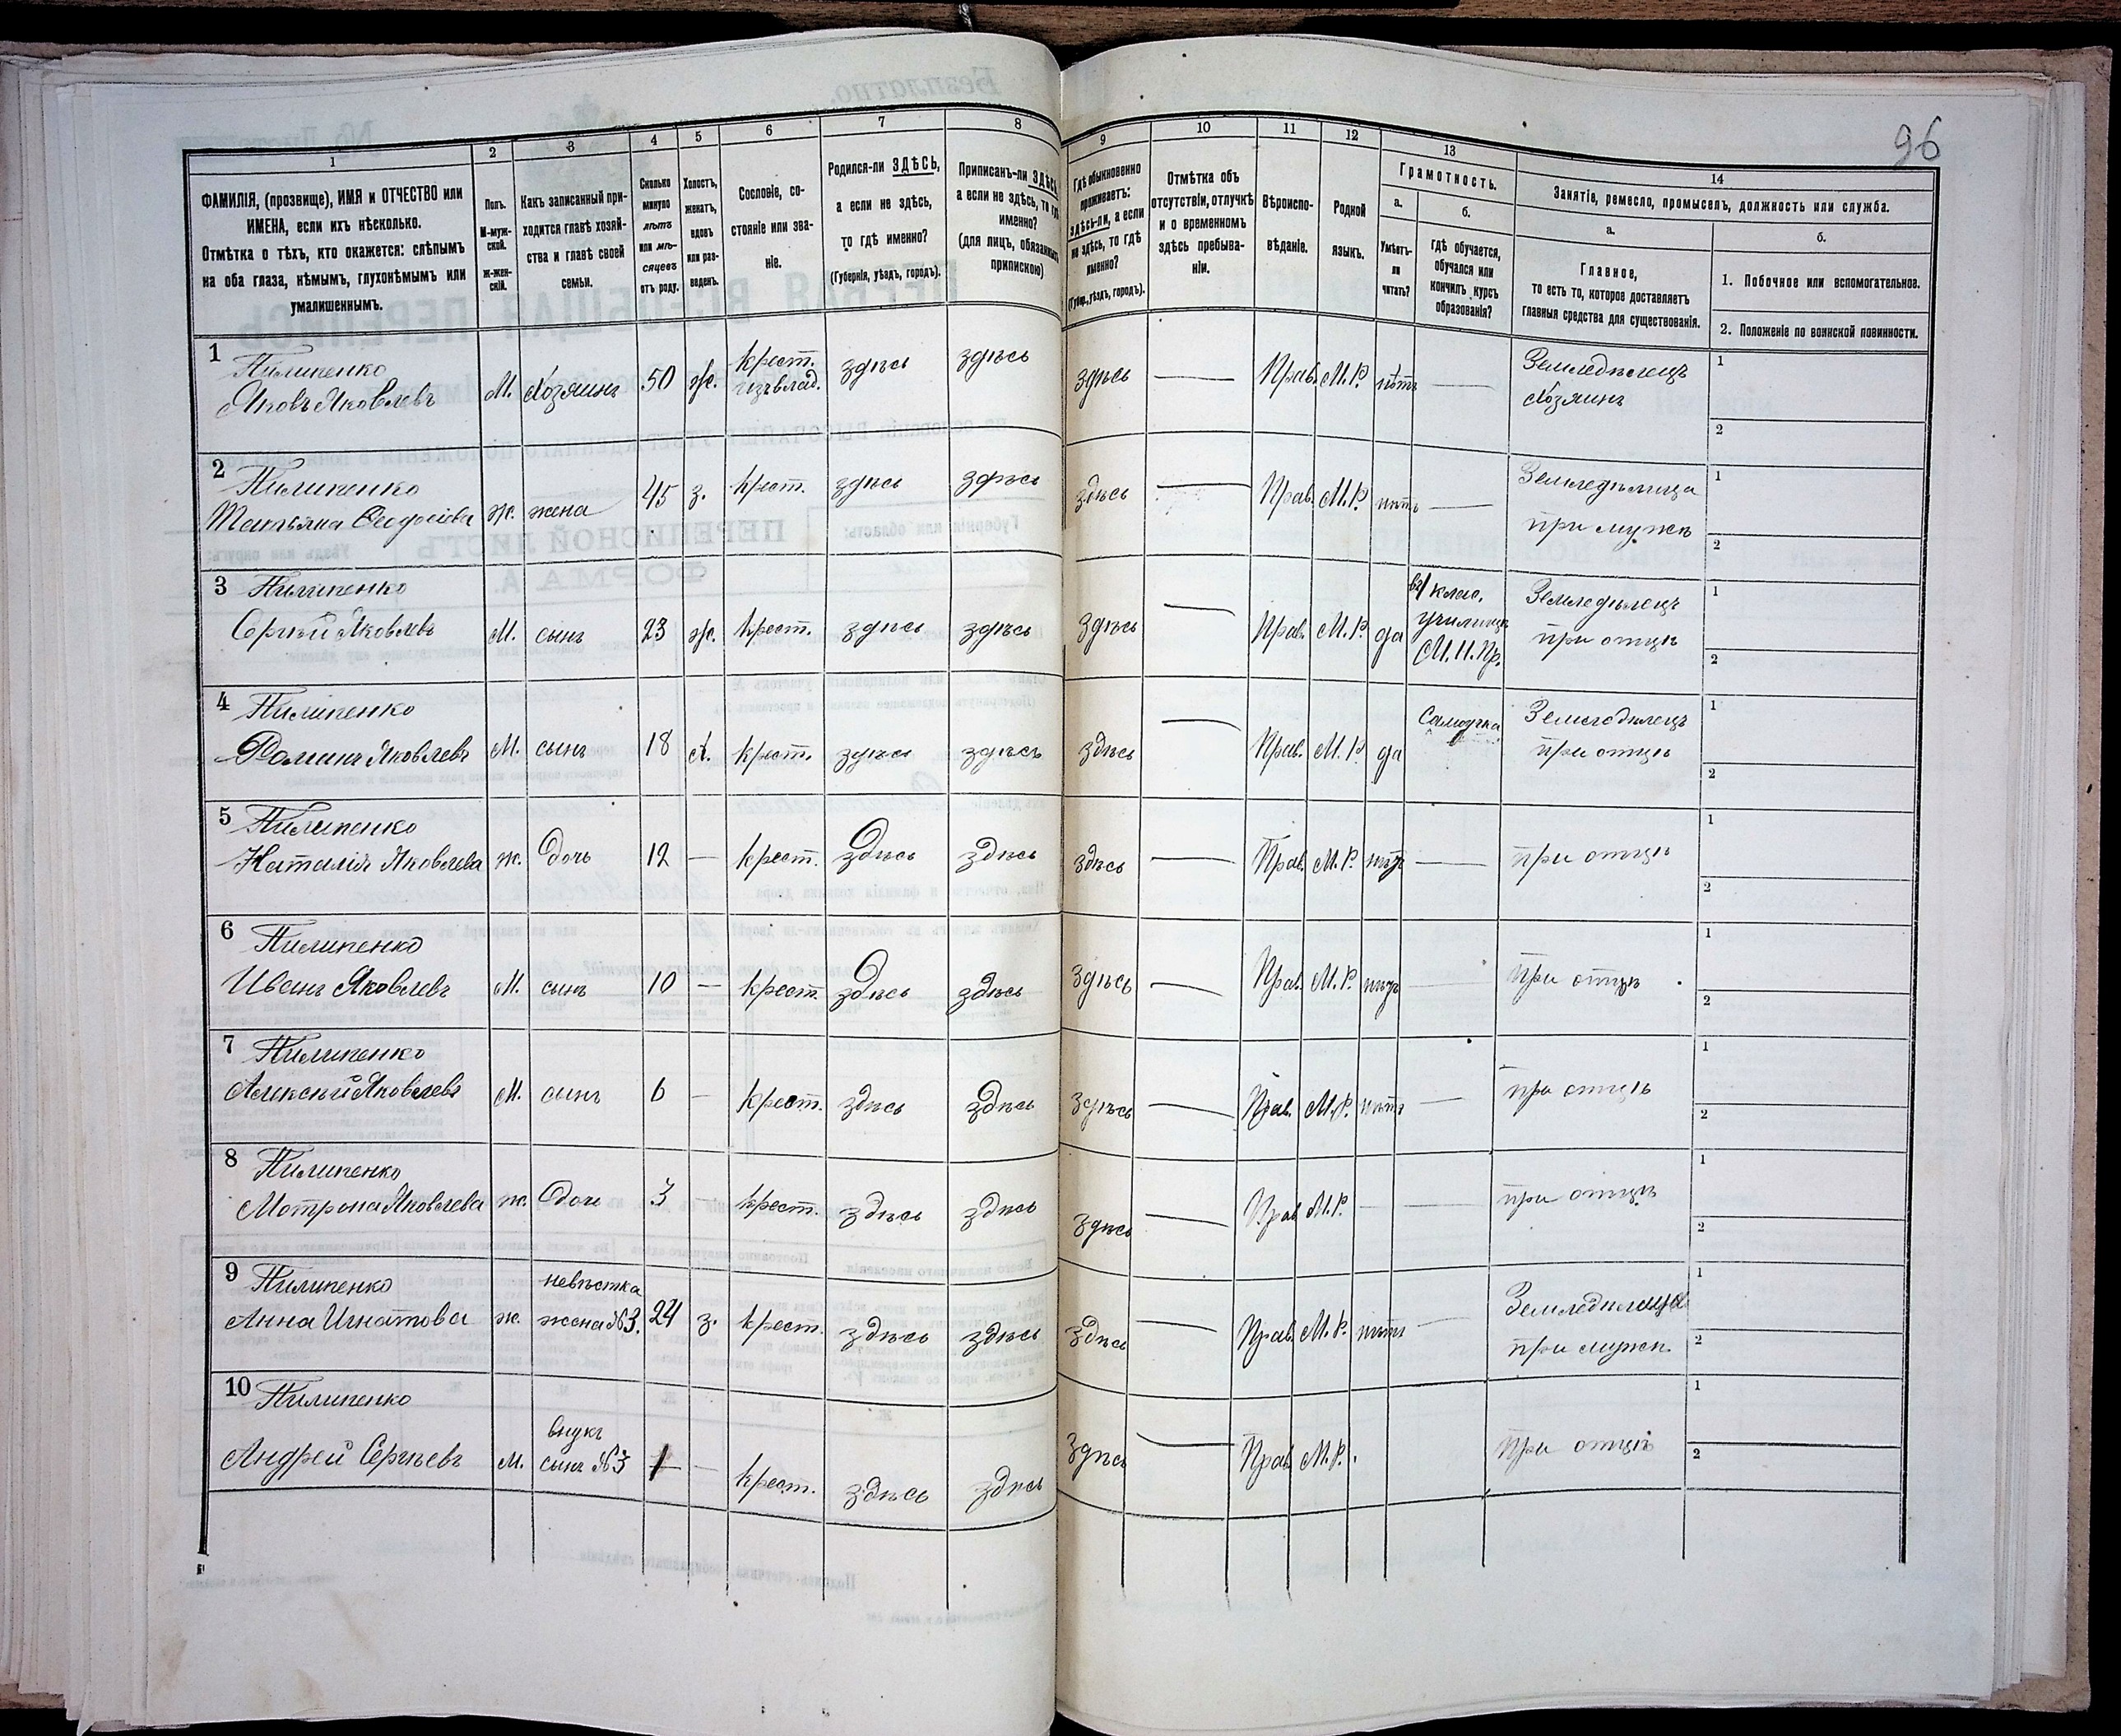 96
1
2
3
4
5
6
7
8
9
10
11
12
13
14
ФАМИЛІЯ, (прозвище), ИМЯ и ОТЧЕСТВО или
ИМЕНА, если ихъ нѣсколько.
Отмѣтка о тѣхъ, кто окажется: слѣпымъ
на оба глаза, нѣмымъ, глухонѣмымъ или
умалишеннымъ.
Полъ.
М-муж-
ской.
Ж-жен-
скій.
Какъ записанный при-
ходится главѣ хозяй-
ства и главѣ своей
семьи.
Сколько
минуло
лѣтъ
или мѣ-
сяцевъ
отъ роду.
Холостъ,
женатъ,
вдовъ
или раз-
веденъ.
Сословіе, со-
стояніе или зва-
ніе.
Родился-ли ЗДѢСЬ,
а если не здѣсь,
то гдѣ именно?
(Губернія, уѣздъ, городъ).
Приписанъ-ли ЗДѢСЬ,
а если не здѣсь, то гдѣ
именно?
(для лицъ, обязанныхъ
припискою)
Гдѣ обыкновенно
проживаетъ:
здѣсь-ли, а если
не здѣсь, то гдѣ
именно?
(Губер., уѣздъ, городъ).
Отмѣтка объ
отсутствіи, отлучкѣ
и о временномъ
здѣсь пребыва-
ніи.
Вѣроиспо-
вѣданіе.
Родной
языкъ.
Грамотность.
а.
Умѣетъ-
ли
читать?
б.
гдѣ обучается,
обучался или
кончилъ курсъ
образованія?
Занятіе, ремесло, промыселъ, должность или служба.
а.
Главное,
то есть то, которое доставляетъ
главныя средства для существованія.
б.
1. Побочное или вспомогательное.
2. Положеніе по воинской повинности.
1 Пилипенко
Яковъ Яковлевъ М. Хозяинъ 50 ж. крест. изъ влад. здѣсь здѣсь здѣсь — Прав. М.Р. нѣтъ — Земледѣлецъ
Хозяинъ
1
2
2 Пилипенко
Татьяна ж. жена 45 з. крест. здѣсь здѣсь здѣсь — Прав. М.Р. нѣтъ — Земледѣлица
при мужѣ
1
2
3 Пилипенко
Сергѣй Яковлевъ М. сынъ 23 ж. крест. здѣсь здѣсь здѣсь — Прав. М.Р. да клас.
училищѣ
М.Н.Пр.
Земледѣлецъ
при отцѣ
1
2
4 Пилипенко
Яковлевъ М. сынъ 18 х. крест. здѣсь здѣсь здѣсь — Прав. М.Р. да Самоучка Земледѣлецъ
при отцѣ
1
2
5 Пилипенко
Наталія Яковлева ж. дочь 12 — крест. здѣсь здѣсь здѣсь — Прав. М.Р. нѣтъ — при отцѣ
1
2
6 Пилипенко
Иванъ Яковлевъ М. сынъ 10 — крест. здѣсь здѣсь здѣсь — Прав. М.Р. нѣтъ — при отцѣ
1
2
7 Пилипенко
Алексѣй Яковлевъ М. сынъ 6 — крест. здѣсь здѣсь здѣсь — Прав. М.Р. нѣтъ — при отцѣ
1
2
8 Пилипенко
Мотрона Яковлева ж. дочь 3 — крест. здѣсь здѣсь здѣсь — Прав. М.Р. — — при отцѣ
1
2
9 Пилипенко невѣстка
Анна Игнатова ж. жена №3. 24 з. крест. здѣсь здѣсь здѣсь — Прав. М.Р. нѣтъ — Земледѣлица
при мужѣ
1
2
10 Пилипенко
внукъ
Андрей Сергѣевъ М. сынъ №3 1 — крест. здѣсь здѣсь здѣсь — Прав. М.Р. при отцѣ
1
2